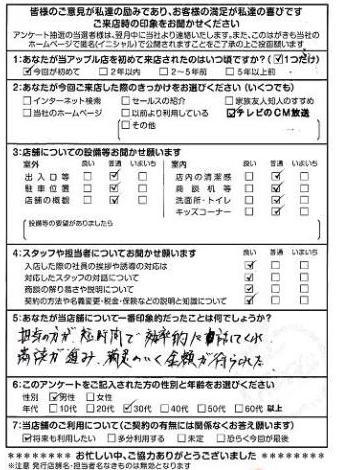 皆様のご意見が私達の励みであり、お客様の満足が私達の喜びです
ご来店時の印象をお聞かせください
アンケート抽選の当選者様は、翌月中に当社より連絡いたします。また、このはがきも当社の
ホームページで匿名(イニシャル)で公開されますことをご了承の上ご投函願います
1:あなたが当アップル店を初めて来店されたのはいつ頃ですか?(☑1つだけ)
☑今回が初めて □2年以内 □2〜5年前 □5年以上前
2:あなたが今回ご来店した際のきっかけをお選びください(いくつでも)
□インターネット検索 □セールスの紹介 □家族友人知人のすすめ
□当社のホームページ □以前より利用している ☑テレビのCM放送
□その他
3:店舗についての設備等お聞かせ願います
室外 良い 普通 いまいち 室内 良い 普通 いまいち
出入口等 □ ☑ □ 店内の清潔感 □ ☑ □
駐車位置 □ ☑ □ 商談机等 □ ☑ □
店舗の概観 □ ☑ □ 洗面所・トイレ □ ☑ □
キッズコーナー □ ☑ □
設備等の要望がありましたら
4:スタッフや担当者についてお聞かせ願います 良い 普通 いまいち
入店した際の社員の挨拶や誘導の対応は ☑ □ □
対応したスタッフの対話について ☑ □ □
商談の解り易さや説明について ☑ □ □
契約の方法や名義変更・税金・保険などの説明と知識について ☑ □ □
5:あなたが当店舗について一番印象的だったことは何でしょうか?
担当の方が短時間で効率的に話してくれ
商談が進み、満足のいく金額が得られた
6:このアンケートをご記入された方の性別と年齢をお選びください
性別 ☑男性 □女性
年代 □10代 □20代 ☑30代 □40代 □50代 □60代 以上
7:当店舗のご利用について(ご契約の有無には関係なくお答え願います)
☑将来も利用したい □多分利用する □未定 □恐らく今回が最後
******** お忙しい中、ご協力ありがとうございました ********
※注意 発行店舗名・担当者名なきものは無効となります